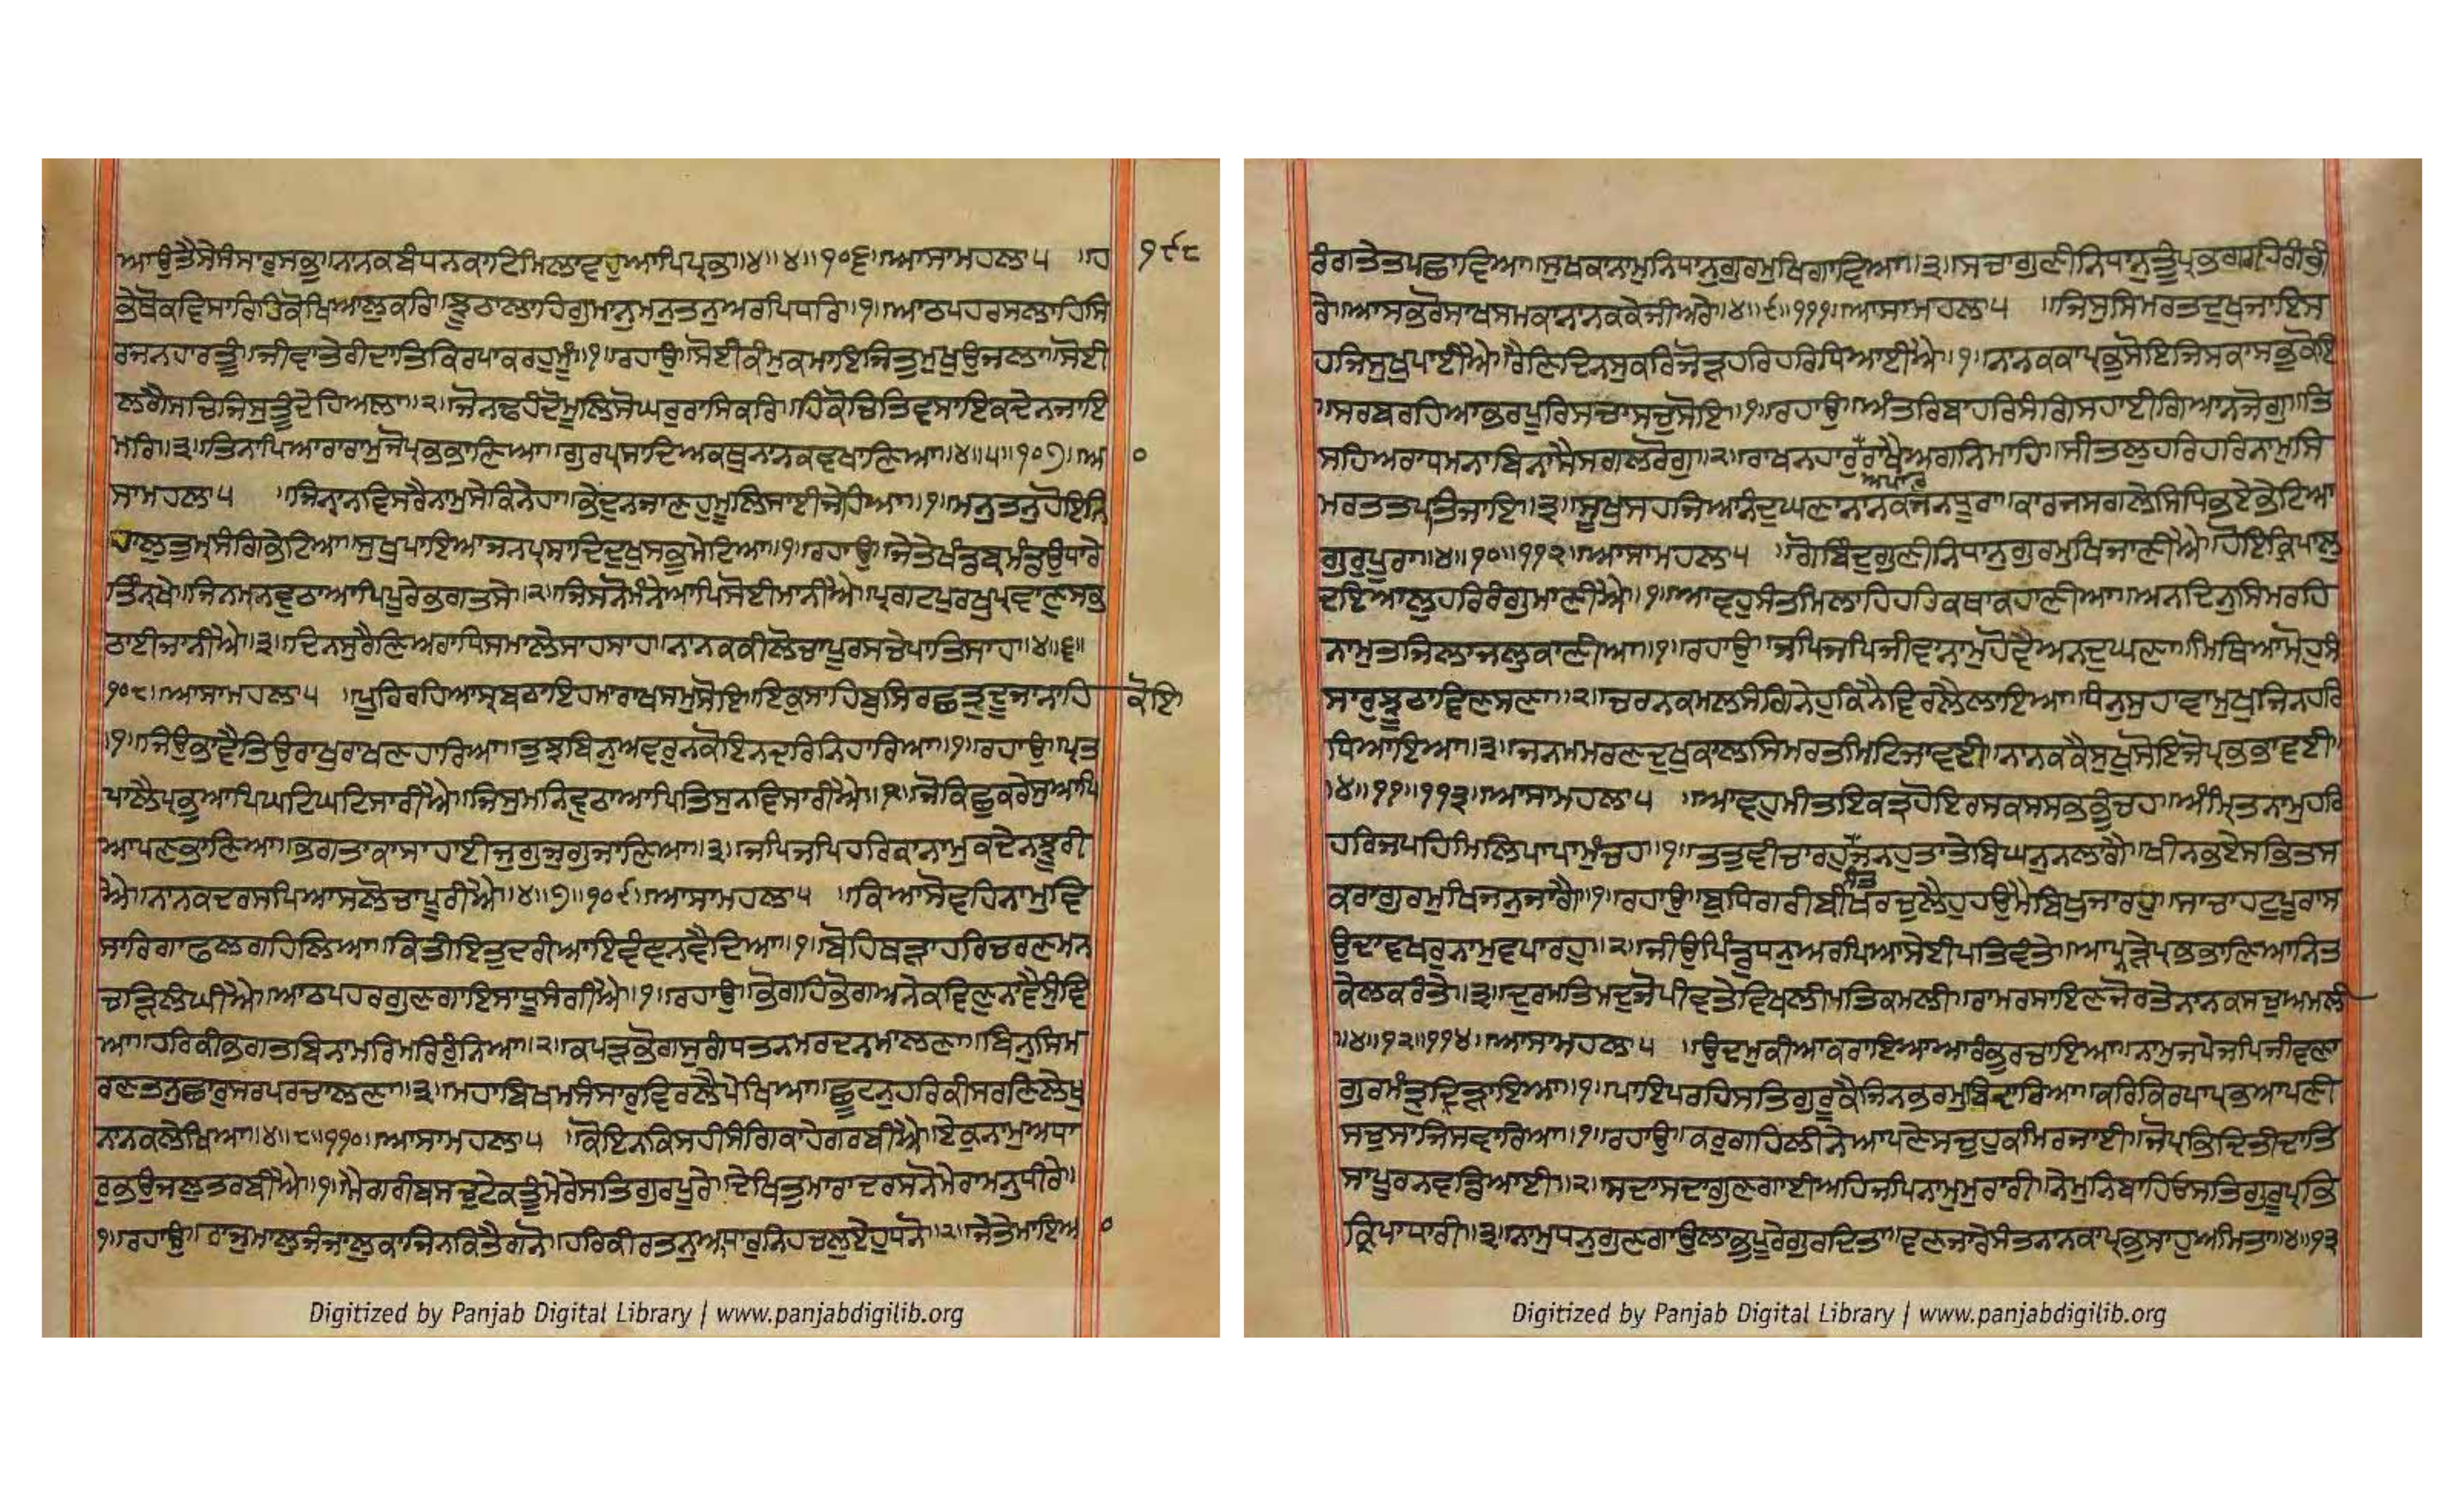 ਆਉਤੈਸੋਸੰਸਾਰੁਸਭੁ।ਨਾਨਕਬੰਧਨਕਾਟਿਮਿਲਾਵਹੁਆਪਿਪ੍ਰਭੁ॥੪॥੪॥੧੦੬॥ਆਸਾਮਹਲਾ੫ ॥ਹ ੧੯੮
ਭੇਥੋਕਵਿਸਾਰਿਹਿਕੋਖਿਆਲੁਕਰਿ।ਝੂਠਾਲਾਹਿਗੁਮਾਨੁਮਨੁਤਨੁਅਰਪਿਧਰਿ॥੧॥ਆਠਪਹਰਸਲਾਹਿਸਿ
ਰਜਨਹਾਰਤੂੰ।ਜੀਵਾਤੇਰੀਦਾਤਿਕਿਰਪਾਕਰਹੁਮੂੰ॥੧॥ਰਹਾਉ॥ਸੋਈਕੰਮੁਕਮਾਇਜਿਤੁਮੁਖੁਉਜਲਾ॥ਸੋਈ
ਲਗੈਸਚਿਜਿਸੁਤੂੰਦੇਹਿਅਲਾ॥੨॥ਜੋਨਢਹੰਦੋਮੂਲਿਸੋਘਰੁਰਾਸਿਕਰਿ।ਹਿਕੋਚਿਤਿਵਸਾਇਕਦੇਨਜਾਇ
ਮਰਿ॥੩॥ਤਿਨਾਪਿਆਰਾਰਾਮੁਜੋਪ੍ਰਭਭਾਣਿਆ॥ਗੁਰਪ੍ਰਸਾਦਿਅਕਥੁਨਾਨਕਵਖਾਣਿਆ॥੪॥੫॥੧੦੭॥ਅ ੦
ਸਾਮਹਲਾ੫ ॥ਜਿਨਾਨਵਿਸਰੈਨਾਮੁਸੇਕਿਨੇਹਾ॥ਭੇਦੁਨਜਾਣਹੁਮੂਲਿਸਾਈਜੇਹਿਆ॥੧॥ਮਨੁਤਨੁਹੋਇਨਿ
ਹਾਲੁਤੁਮ੍ਹਸੰਗਿਭੇਟਿਆ॥ਸੁਖੁਪਾਇਆਜਨਪ੍ਰਸਾਦਿਦੁਖੁਸਭੁਮੇਟਿਆ॥੧॥ਰਹਾਉ॥ਜੇਤੇਖੰਡਬ੍ਰਹਮੰਡਉਧਾਰੇ
ਤਿੰਨ੍ਹਖੇ॥ਜਿਨਮਨਵੁਠਾਆਪਿਪੂਰੇਭਗਤਸੇ॥੨॥ਜਿਸਨੋਮੰਨੇਆਪਿਸੋਈਮਾਨੀਐ॥ਪ੍ਰਗਟਪੁਰਖੁਪ੍ਰਵਾਣੁਸਭ
ਠਾਈਜਾਨੀਐ॥੩॥ਦਿਨਸੁਰੈਣਿਅਰਾਧਿਸਮਾਲੇਸਾਹਸਾਹ।ਨਾਨਕਕੀਲੋਚਾਪੂਰਿਸਚੇਪਾਤਿਸਾਹ॥੪॥੬॥
੧੦੮॥ਆਸਾਮਹਲਾ੫ ॥ਪੂਰਿਰਹਿਆਸ੍ਰਬਠਾਇਹਮਾਰਾਖਸਮੁਸੋਇ।ਇਕੁਸਾਹਿਬੁਸਿਰਛਤੁਦੂਜਾਨਾਹਿ ਕੋਇ
॥੧॥ਜਿਉਭਾਵੈਤਿਉਰਾਖੁਰਾਖਣਹਾਰਿਆ॥ਤੁਝਬਿਨੁਅਵਰੁਨਕੋਇਨਦਰਿਨਿਹਾਰਿਆ॥੧॥ਰਹਾਉ॥ਪ੍ਰਤ
ਪਾਲੈਪ੍ਰਭੁਆਪਿਘਟਿਘਟਿਸਾਰੀਐ॥ਜਿਸੁਮਨਿਵੁਠਾਆਪਿਤਿਸੁਨਵਿਸਾਰੀਐ॥੨॥ਜੋਕਿਛੁਕਰੇਸੁਆਪਿ
ਆਪਣਭਾਣਿਆ॥ਭਗਤਾਕਾਸਾਹਾਈਜੁਗੁਜੁਗੁਜਾਣਿਆ॥੩॥ਜਪਿਜਪਿਹਰਿਕਾਨਾਮੁਕਦੇਨਝੂਰੀ
ਐ॥ਨਾਨਕਦਰਸਪਿਆਸਲੋਚਾਪੂਰੀਐ॥੪॥੭॥੧੦੯॥ਆਸਾਮਹਲਾ੫ ॥ਕਿਆਸੋਵਹਿਨਾਮੁਵਿ
ਸਾਰਿਗਾਫਲਗਹਿਲਿਆ॥ਕਿਤੀਇਤੁਦਰੀਆਇਵੰਞਨਵੈਦਿਆ॥੧॥ਬੋਹਿਥੜਾਹਰਿਚਰਣਮਨ
ਚੜਿਲੰਘੀਐ॥ਆਠਪਹਰਗੁਣਗਾਇਸਾਧੂਸੰਗੀਐ॥੧॥ਰਹਾਉ॥ਭੋਗਹਿਭੋਗਅਨੇਕਵਿਣੁਨਾਵੈਸੁੰਞਿ
ਆ॥ਹਰਿਕੀਭਗਤਬਿਨਾਮਰਿਮਰਿਰੁੰਨਿਆ॥੨॥ਕਪੜਭੋਗਸੁਗੰਧਤਨਮਰਦਨਮਾਲਣਾ॥ਬਿਨੁਸਿਮ
ਰਣਤਨੁਛਾਰੁਸਰਪਰਚਾਲਣਾ॥੩॥ਮਹਾਬਿਖਮਸੰਸਾਰੁਵਿਰਲੈਪੇਖਿਆ॥ਛੂਟਨੁਹਰਿਕੀਸਰਣਿਲੇਖੁ
ਨਾਨਕਲੇਖਿਆ॥੪॥੮॥੧੧੦॥ਆਸਾਮਹਲਾ੫ ॥ਕੋਇਨਕਿਸਹੀਸੰਗਿਕਾਹੇਗਰਬੀਐ॥ਏਕੁਨਾਮੁਅਧਾ
ਰੁਭਉਜਲੁਤਰਬੀਐ॥੧॥ਮੈਗਰੀਬਸਚੁਟੇਕਤੂੰਮੇਰੇਸਤਿਗੁਰਪੂਰੇ॥ਦੇਖਿਤੁਮਾਰਾਦਰਸਨੋਮੇਰਾਮਨੁਧੀਰੇ॥
੧॥ਰਹਾਉ॥ਰਾਜੁਮਾਲੁਜੰਜਾਲੁਕਾਜਿਨਕਿਤੈਗਨੋ॥ਹਰਿਕੀਰਤਨੁਆਧਾਰੁਨਿਹਚਲੁਏਹੁਧਨੋ॥੨॥ਜੇਤੇਮਾਇਆ ੦
Digitized by Panjab Digital Library | www.panjabdigilib.org
ਰੰਗਤੇਤਪਛਾਵਿਆ॥ਸੁਖਕਾਨਾਮੁਨਿਧਾਨੁਗੁਰਮੁਖਿਗਾਵਿਆ॥੩॥ਸਚਾਗੁਣੀਨਿਧਾਨੁਤੂੰਪ੍ਰਭਗਹਿਰਗੰਭੀ
ਰੇ॥ਆਸਭਰੋਸਾਖਸਮਕਾਨਾਨਕਕੇਜੀਅਰੇ॥੪॥੯॥੧੧੧॥ਆਸਾਮਹਲਾ੫ ॥ਜਿਸੁਸਿਮਰਤਦੁਖੁਜਾਇਸ
ਹਜਿਸੁਖੁਪਾਈਐ॥ਰੈਣਿਦਿਨਸੁਕਰਿਜੋੜਹਰਿਹਰਿਧਿਆਈਐ॥੧॥ਨਾਨਕਕਾਪ੍ਰਭੁਸੋਇਜਿਸਕਾਸਭੁਕੋਇ
॥ਸਰਬਰਹਿਆਭਰਪੂਰਿਸਚਾਸਚੁਸੋਇ॥੧॥ਰਹਾਉ॥ਅੰਤਰਿਬਾਹਰਿਸੰਗਿਸਹਾਈਗਿਆਨਜੋਗੁ॥ਤਿ
ਸਹਿਅਰਾਧਮਨਾਬਿਨਾਸੈਸਗਲਰੋਗੁ॥੨॥ਰਾਖਨਹਾਰੁਰਾਖੈਅਗਨਿਮਾਹਿ॥ਸੀਤਲੁਹਰਿਹਰਿਨਾਮੁਸਿ
ਅਪਾਰੁ
ਮਰਤਤਪਤਿਜਾਇ॥੩॥ਸੂਖੁਸਹਜਿਆਨੰਦੁਘਣਾਨਾਨਕਜਨਧੂਰਾ॥ਕਾਰਜਸਗਲੇਸਿਧਿਭਏਭੇਟਿਆ
ਗੁਰੁਪੂਰਾ॥੪॥੧੦॥੧੧੨॥ਆਸਾਮਹਲਾ੫ ॥ਗੋਬਿੰਦੁਗੁਣੀਨਿਧਾਨੁਗੁਰਮੁਖਿਜਾਣੀਐ॥ਹੋਇਕ੍ਰਿਪਾਲੁ
ਦਇਆਲੁਹਰਿਰੰਗੁਮਾਣੀਐ॥੧॥ਆਵਹੁਸੰਤਮਿਲਾਹਿਹਰਿਕਥਾਕਹਾਣੀਆ॥ਅਨਦਿਨੁਸਿਮਰਹਿ
ਨਾਮੁਤਜਿਲਾਜਲੁਕਾਣੀਆ॥੧॥ਰਹਾਉ॥ਜਪਿਜਪਿਜੀਵਾਨਾਮੁਹੋਵੈਅਨਦੁਘਣਾ॥ਮਿਥਿਆਮੋਹੁਸੰ
ਸਾਰੁਝੂਠਾਵਿਣਸਣਾ॥੨॥ਚਰਨਕਮਲਸੰਗਿਨੇਹੁਕਿਨੈਵਿਰਲੈਲਾਇਆ॥ਧੰਨੁਸੁਹਾਵਾਮੁਖੁਜਿਨਹਰਿ
ਧਿਆਇਆ॥੩॥ਜਨਮਮਰਣਦੁਖਕਾਲਸਿਮਰਤਮਿਟਿਜਾਵਈ॥ਨਾਨਕਕੈਸੁਖੁਸੋਇਜੋਪ੍ਰਭਭਾਵਈ॥
॥੪॥੧੧॥੧੧੩॥ਆਸਾਮਹਲਾ੫ ॥ਆਵਹੁਮੀਤਇਕਤ੍ਰਹੋਇਰਸਕਸਸਭਭੁੰਚਹ॥ਅੰਮ੍ਰਿਤਨਾਮੁਹਰਿ
ਹਰਿਜਪਹਿਮਿਲਿਪਾਪਾਮੁੰਚਹ॥੧॥ਤਤੁਵੀਚਾਰਹੁਜਨਹੁਤਾਤੇਬਿਘਨੁਨਲਾਗੈ॥ਖੀਨਭਏਸਭਿਤਸ
ਸੰਤ
ਕਰਾਗੁਰਮੁਖਿਜਨੁਜਾਗੈ॥੧॥ਰਹਾਉ॥ਬੁਧਿਗਰੀਬੀਖਰਚੁਲੈਹੁਹਉਮੈਬਿਖੁਜਾਰਹੁ॥ਸਾਚਾਹਟੁਪੂਰਾਸ
ਉਦਾਵਖਰੁਨਾਮੁਵਪਾਰਹੁ॥੨॥ਜੀਉਪਿੰਡੁਧਨੁਅਰਪਿਆਸੇਈਪਤਿਵੰਤੇ॥ਆਪਨੜੇਪ੍ਰਭਭਾਣਿਆਨਿਤ
ਕੇਲਕਰੰਤੇ॥੩॥ਦੁਰਮਤਿਮਦੁਜੋਪੀਵਤੇਬਿਖਲੀਪਤਿਕਮਲੀ॥ਰਾਮਰਸਾਇਣਿਜੋਰਤੇਨਾਨਕਸਚੁਅਮਲੀ
॥੪॥੧੨॥੧੧੪॥ਆਸਾਮਹਲਾ੫ ॥ਉਦਮੁਕੀਆਕਰਾਇਆਆਰੰਭੁਰਚਾਇਆ॥ਨਾਮੁਜਪੇਜਪਿਜੀਵਣਾ
ਗੁਰਮੰਤ੍ਰੁਦ੍ਰਿੜਾਇਆ॥੧॥ਪਾਇਪਰਹਿਸਤਿਗੁਰੂਕੈਜਿਨਭਰਮੁਬਿਦਾਰਿਆ॥ਕਰਿਕਿਰਪਾਪ੍ਰਭਆਪਣੀ
ਸਚੁਸਾਜਿਸਵਾਰਿਆ॥੧॥ਰਹਾਉ॥ਕਰੁਗਹਿਲੀਨੇਆਪਣੇਸਚੁਹੁਕਮਿਰਜਾਈ॥ਜੋਪ੍ਰਭਿਦਿਤੀਦਾਤਿ
ਸਾਪੂਰਨਵਡਿਆਈ॥੨॥ਸਦਾਸਦਾਗੁਣਗਾਈਅਹਿਜਪਿਨਾਮੁਮੁਰਾਰੀ॥ਨੇਮੁਨਿਬਾਹਿਓਸਤਿਗੁਰੂਪ੍ਰਭਿ
ਕਿਰਪਾਧਾਰੀ॥੩॥ਨਾਮੁਧਨੁਗੁਣਗਾਉਲਾਭੁਪੂਰੇਗੁਰਦਿਤਾ॥ਵਣਜਾਰੇਸੰਤਨਾਨਕਾਪ੍ਰਭੁਸਾਹੁਅਮਿਤਾ॥੪॥੧੩
Digitized by Panjab Digital Library | www.panjabdigilib.org